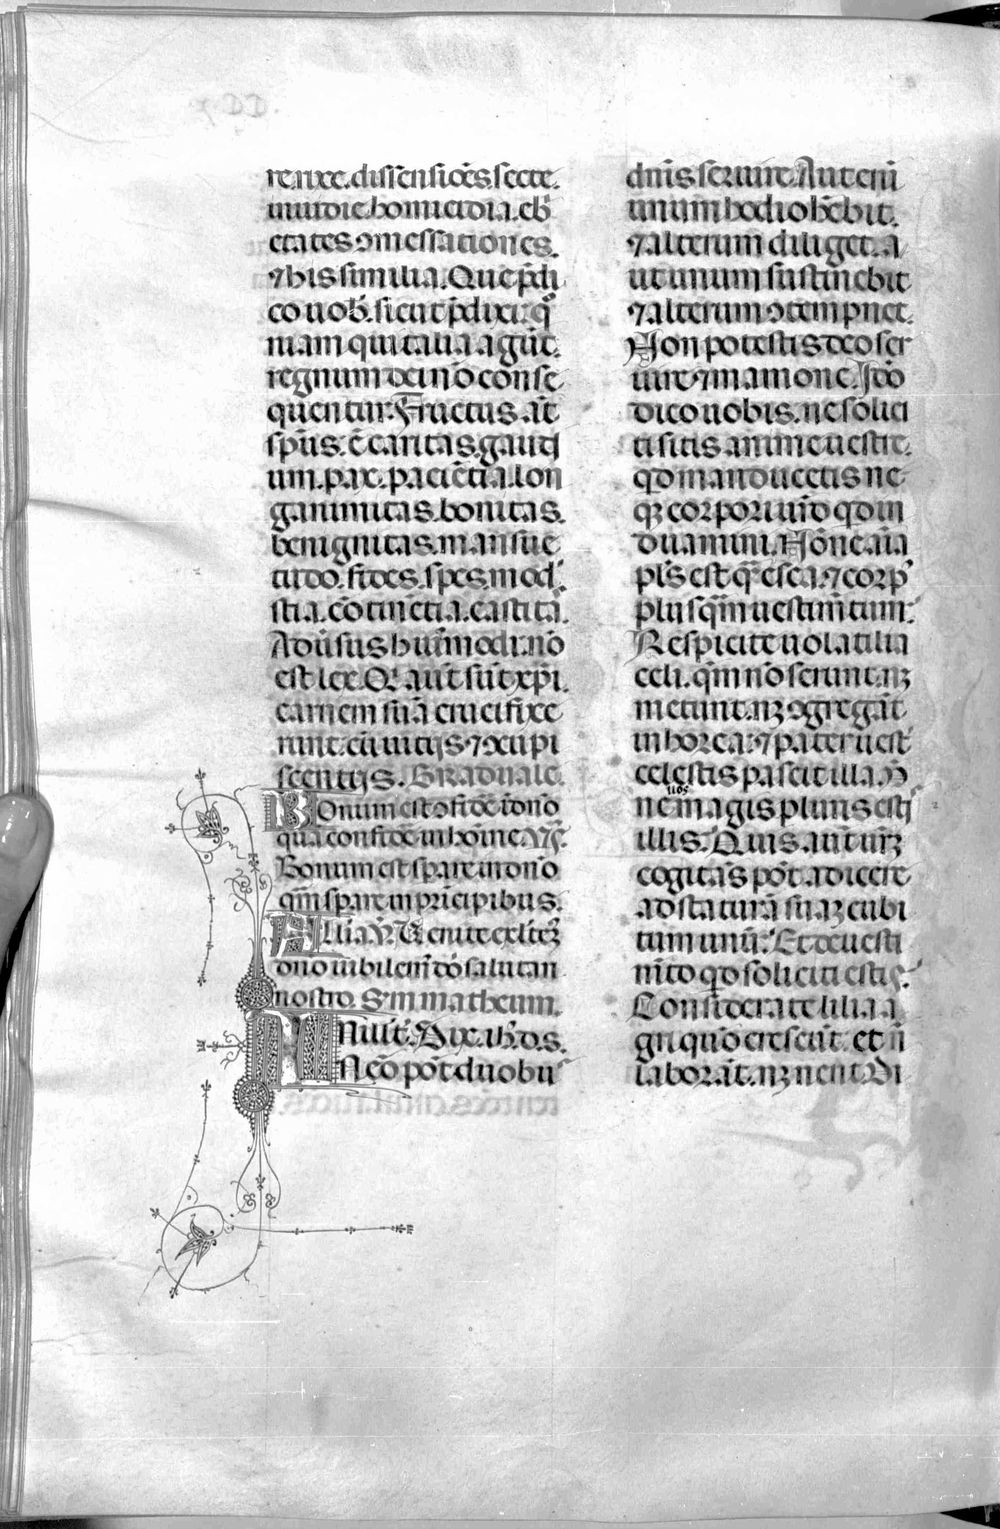 re. rixe. dissensiões. secte.
inuidie. homicidia. eb̾
etates ꝯmessationes.
⁊ his similia. Que p̄di
co uob̾. sicut p̄dixi. qͦ
niam qui talia agūt.
regnum dei nō conse
quentur. Fructus. aūt
sp̄us. ē caritas. gaudi
um. pax. paciētia. lon
ganimitas. bonitas.
benignitas. mansue
tudo. fides. spes. mod̾
stia. cōtinētia. castitā.
Aduͥsus huiͥmodi. nō
est lex. Qͥ. aūt sūt xp̄i.
carnem suā crucifixe
runt. cū uitijs. ⁊ ꝯcupi
scentijs. Graduale.
Bonum est ꝯfidẽ ī dn̄o
quā confidẽ in hoīne. V̄s̄.
Bonum est spare in dn̄o
qm̄ spare in prīcipibus.
Allīa. V̄. Venite exlteꝫ
dn̄o iubilem̄ dō salutari
nostro. S̄m matheum.
IN illͦ t̄. Dix. ih̄s. d. s.
Neō pōt duobu᷒
dn̄is seruire. Aut eni̅
unum hodio hēbit.
⁊ alterum diliget. a
ut unum sustinebit
⁊ alterum ꝯtempnet.
Non potestis deo ser
uire ⁊ mamone. Ido̅
dico uobis. ne solici
ti sitis anime uestre.
qd manducetis ne
qꝫ corpori ur̄o qd in
duamini. Nōne aīa
pl᷒ est qͣ esca. ⁊ corp᷒
plus qͣm uestim̄tum.
Respicite uolatilia
celi. qm̄ nō serunt. nꝫ
metunt. nꝫ ꝯgregāt
in horea. ⁊ pater ur̄ est
celestis pascit illa. N̄
ne uos magis pluris estis
illis. Quis. aūt ur̄ꝫ
cogitās pōt. adicere
ad staturā suaꝫ cubi
tum unū. Et de uesti
mīto qd soliciti estis.
Considerate lilia a
gri quō crescūt. et n̄
laborāt. nꝫ nent. Di